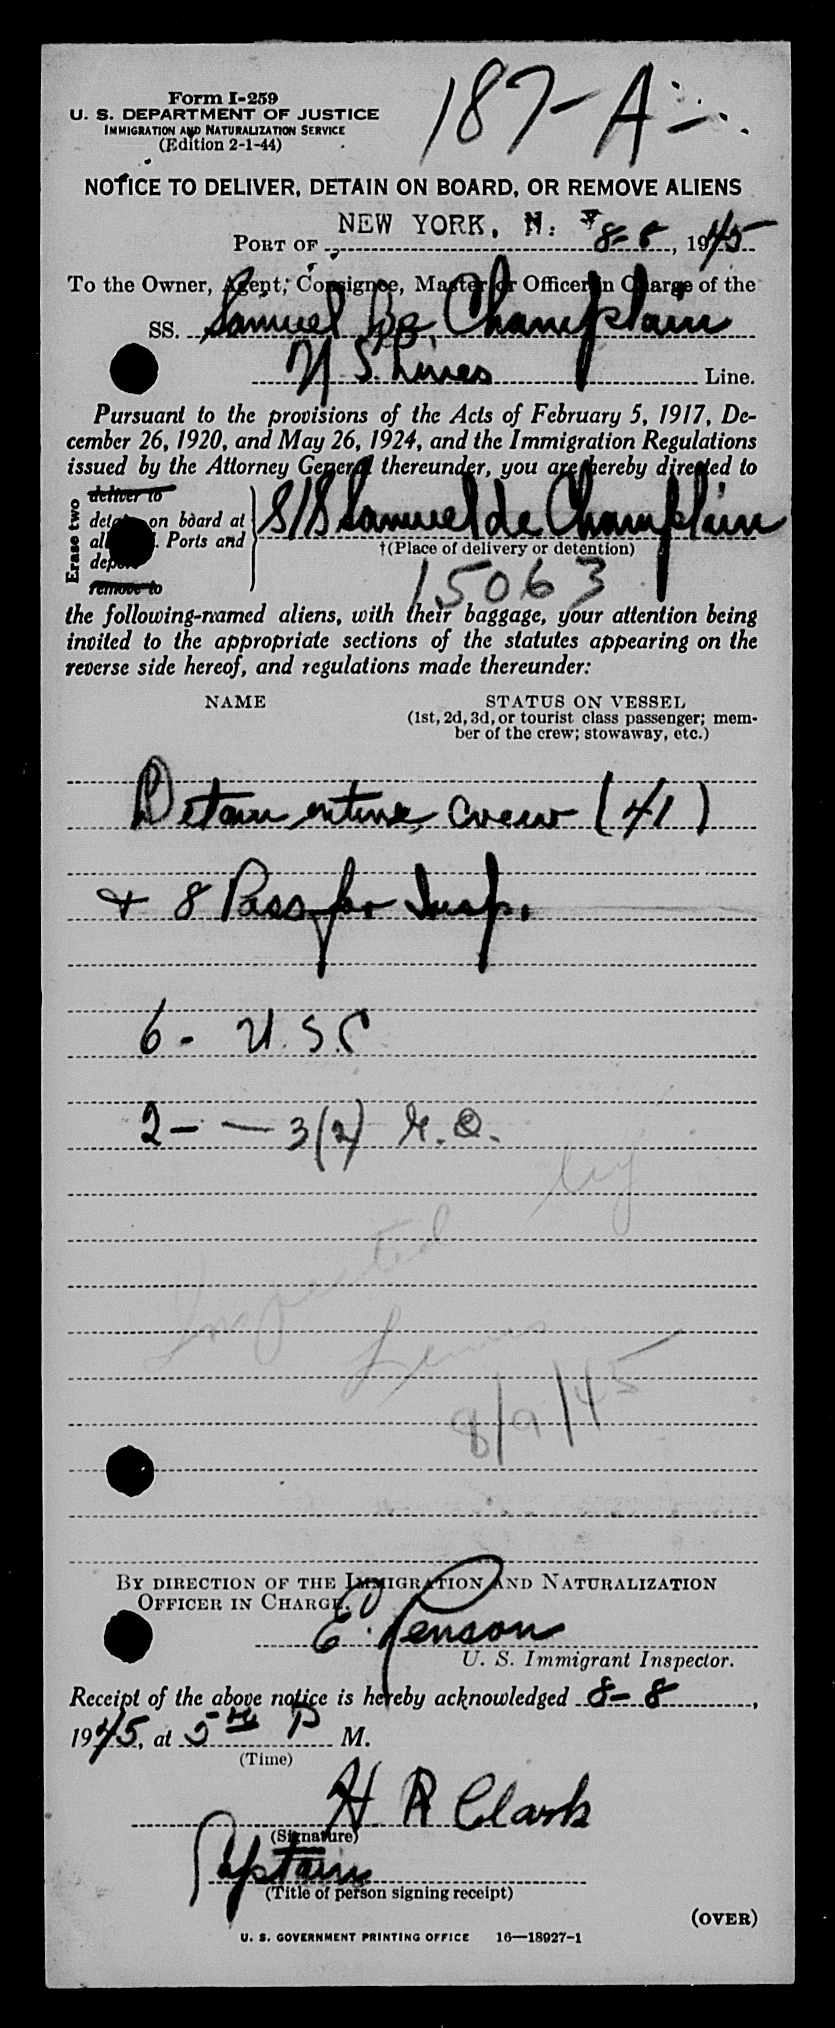 Form I-259
U. S. DEPARTMENT OF JUSTICE
IMMIGRATION AND NATURALIZATION SERVICE
(Edition 2-1-44)
187-A
NOTICE TO DELIVER, DETAIN ON BOARD, OR REMOVE ALIENS
PORT OF NEW YORK, N. Y 8-8, 1945
To the Owner, Agent, Consignee, Master or Officer in Charge of the
SS. Samuel De Champlain
U S. Lines Line.
Pursuant to the provisions of the Acts of February 5, 1917, De-
cember 26, 1920, and May 26, 1924, and the Immigration Regulations
issued by the Attorney General thereunder, you are hereby directed to
Erase two
deliver to
detain on board at
all U.S. Ports and
deport
remove to
S/S Samuel de Champlain
†(Place of delivery or detention)
15063
the following-named aliens, with their baggage, your attention being
invited to the appropriate sections of the statutes appearing on the
reverse side hereof, and regulations made thereunder:
NAME STATUS ON VESSEL
(1st, 2d, 3d, or tourist class passenger; mem-
ber of the crew; stowaway, etc.)
Detain entire crew (41)
+ 8 Pass for Insp.
6 - U.S.C
2 - — 3(2)
Inspected by
8/9/45
BY DIRECTION OF THE IMMIGRATION AND NATURALIZATION
OFFICER IN CHARGE,
E. Penson
U. S. Immigrant Inspector.
Receipt of the above notice is hereby acknowledged 8-8,
1945, at 5 P M.
(Time)
H R Clark
(Signature)
Captain
(Title of person signing receipt)
(OVER)
U. S. GOVERNMENT PRINTING OFFICE 16—18927-1